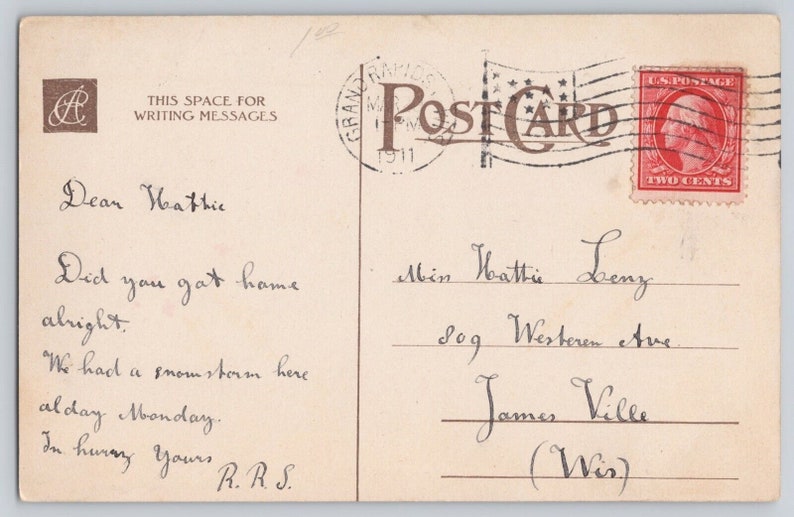 1.00
THIS SPACE FOR
WRITING MESSAGES
POST CARD
GRAND RAPIDS
MAR
1-PM
1911
U.S. POSTAGE
TWO CENTS
Dear Hattie
Did you got home
alright.
We had a snowstorm here
alday Monday.
In hurry Yours
R. R. S.
Miss Hattie Lenz
809 Westeren Ave
James Ville
(Wis)